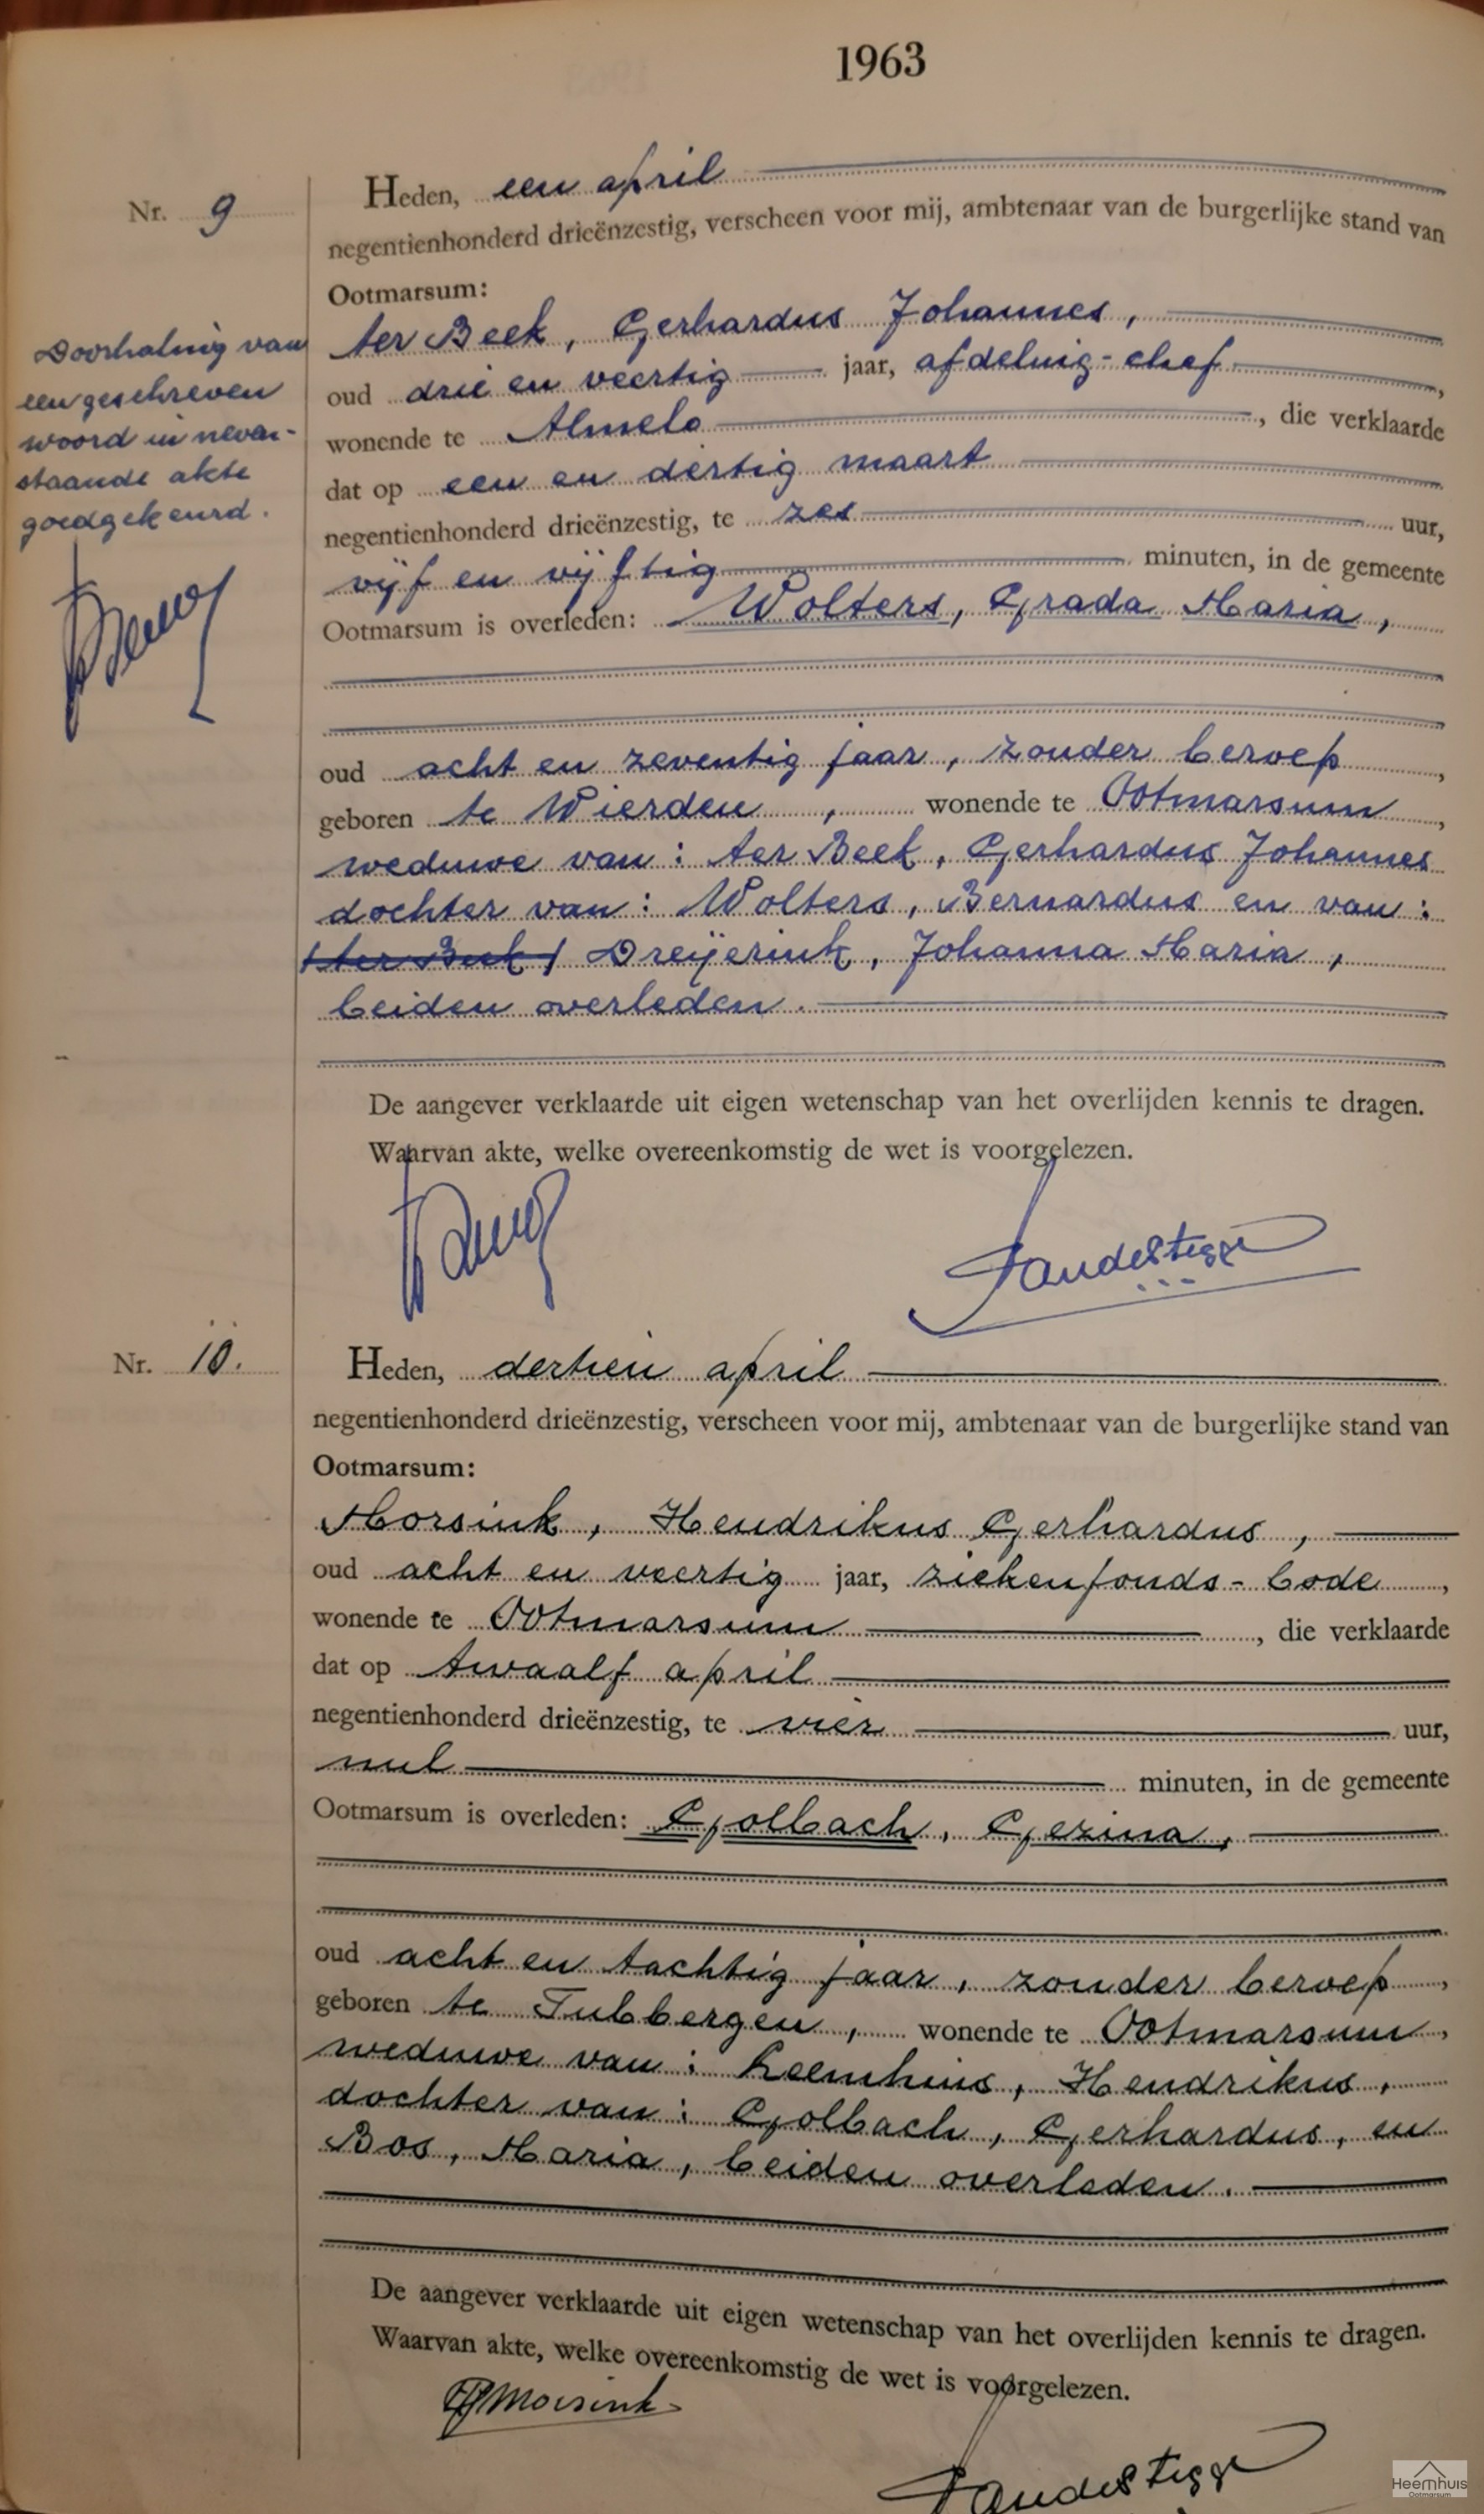 1963
Nr. 9
Heden, een april
negentienhonderd drieënzestig, verscheen voor mij, ambtenaar van de burgerlijke stand van
Ootmarsum:
ter Beek, Gerhardus Johannes,
oud drie en veertig jaar, afdeling-chef,
wonende te Almelo, die verklaarde
dat op een en dertig maart
negentienhonderd drieënzestig, te zes uur,
vijf en vijftig minuten, in de gemeente
Ootmarsum is overleden: Wolters, Grada Maria,
oud acht en zeventig jaar, zonder beroep,
geboren te Wierden, wonende te Ootmarsum,
weduwe van: ter Beek, Gerhardus Johannes
dochter van: Wolters, Bernardus en van:
/ter Beek/ Dreijerink, Johanna Maria,
beiden overleden.
De aangever verklaarde uit eigen wetenschap van het overlijden kennis te dragen.
Waarvan akte, welke overeenkomstig de wet is voorgelezen.
Doorhaling van
een geschreven
woord in neven-
staande akte
goedgekeurd.
Nr. 10.
Heden, dertien april
negentienhonderd drieënzestig, verscheen voor mij, ambtenaar van de burgerlijke stand van
Ootmarsum:
Morsink, Hendrikus Gerhardus,
oud acht en veertig jaar, ziekenfonds-bode,
wonende te Ootmarsum, die verklaarde
dat op twaalf april
negentienhonderd drieënzestig, te vier uur,
nul minuten, in de gemeente
Ootmarsum is overleden: Golbach, Gezina,
oud acht en tachtig jaar, zonder beroep,
geboren te Tubbergen, wonende te Ootmarsum,
weduwe van: Leemhuis, Hendrikus,
dochter van: Golbach, Gerhardus, en
Bos, Maria, beiden overleden.
De aangever verklaarde uit eigen wetenschap van het overlijden kennis te dragen.
Waarvan akte, welke overeenkomstig de wet is voorgelezen.
Morsink
Heemhuis
Ootmarsum